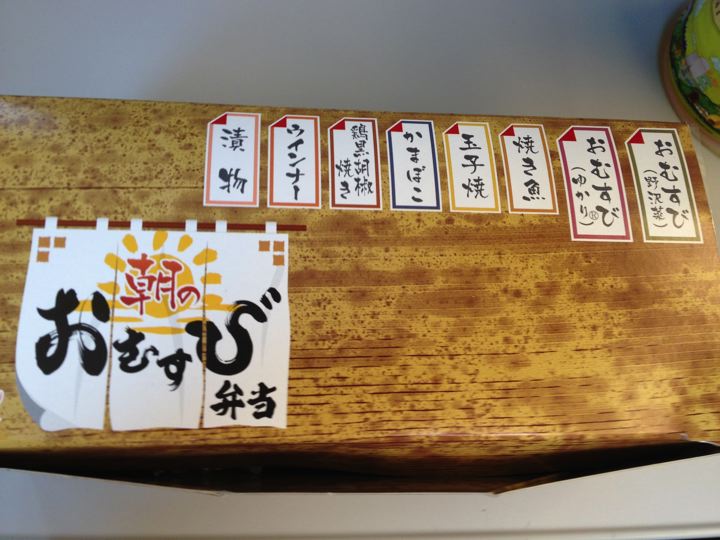 おむすび
(野沢菜)
おむすび
(ゆかり®)
焼き魚
玉子焼
かまぼこ
鶏黒胡椒
焼き
ウインナー
漬物
朝の
おむすび
弁当